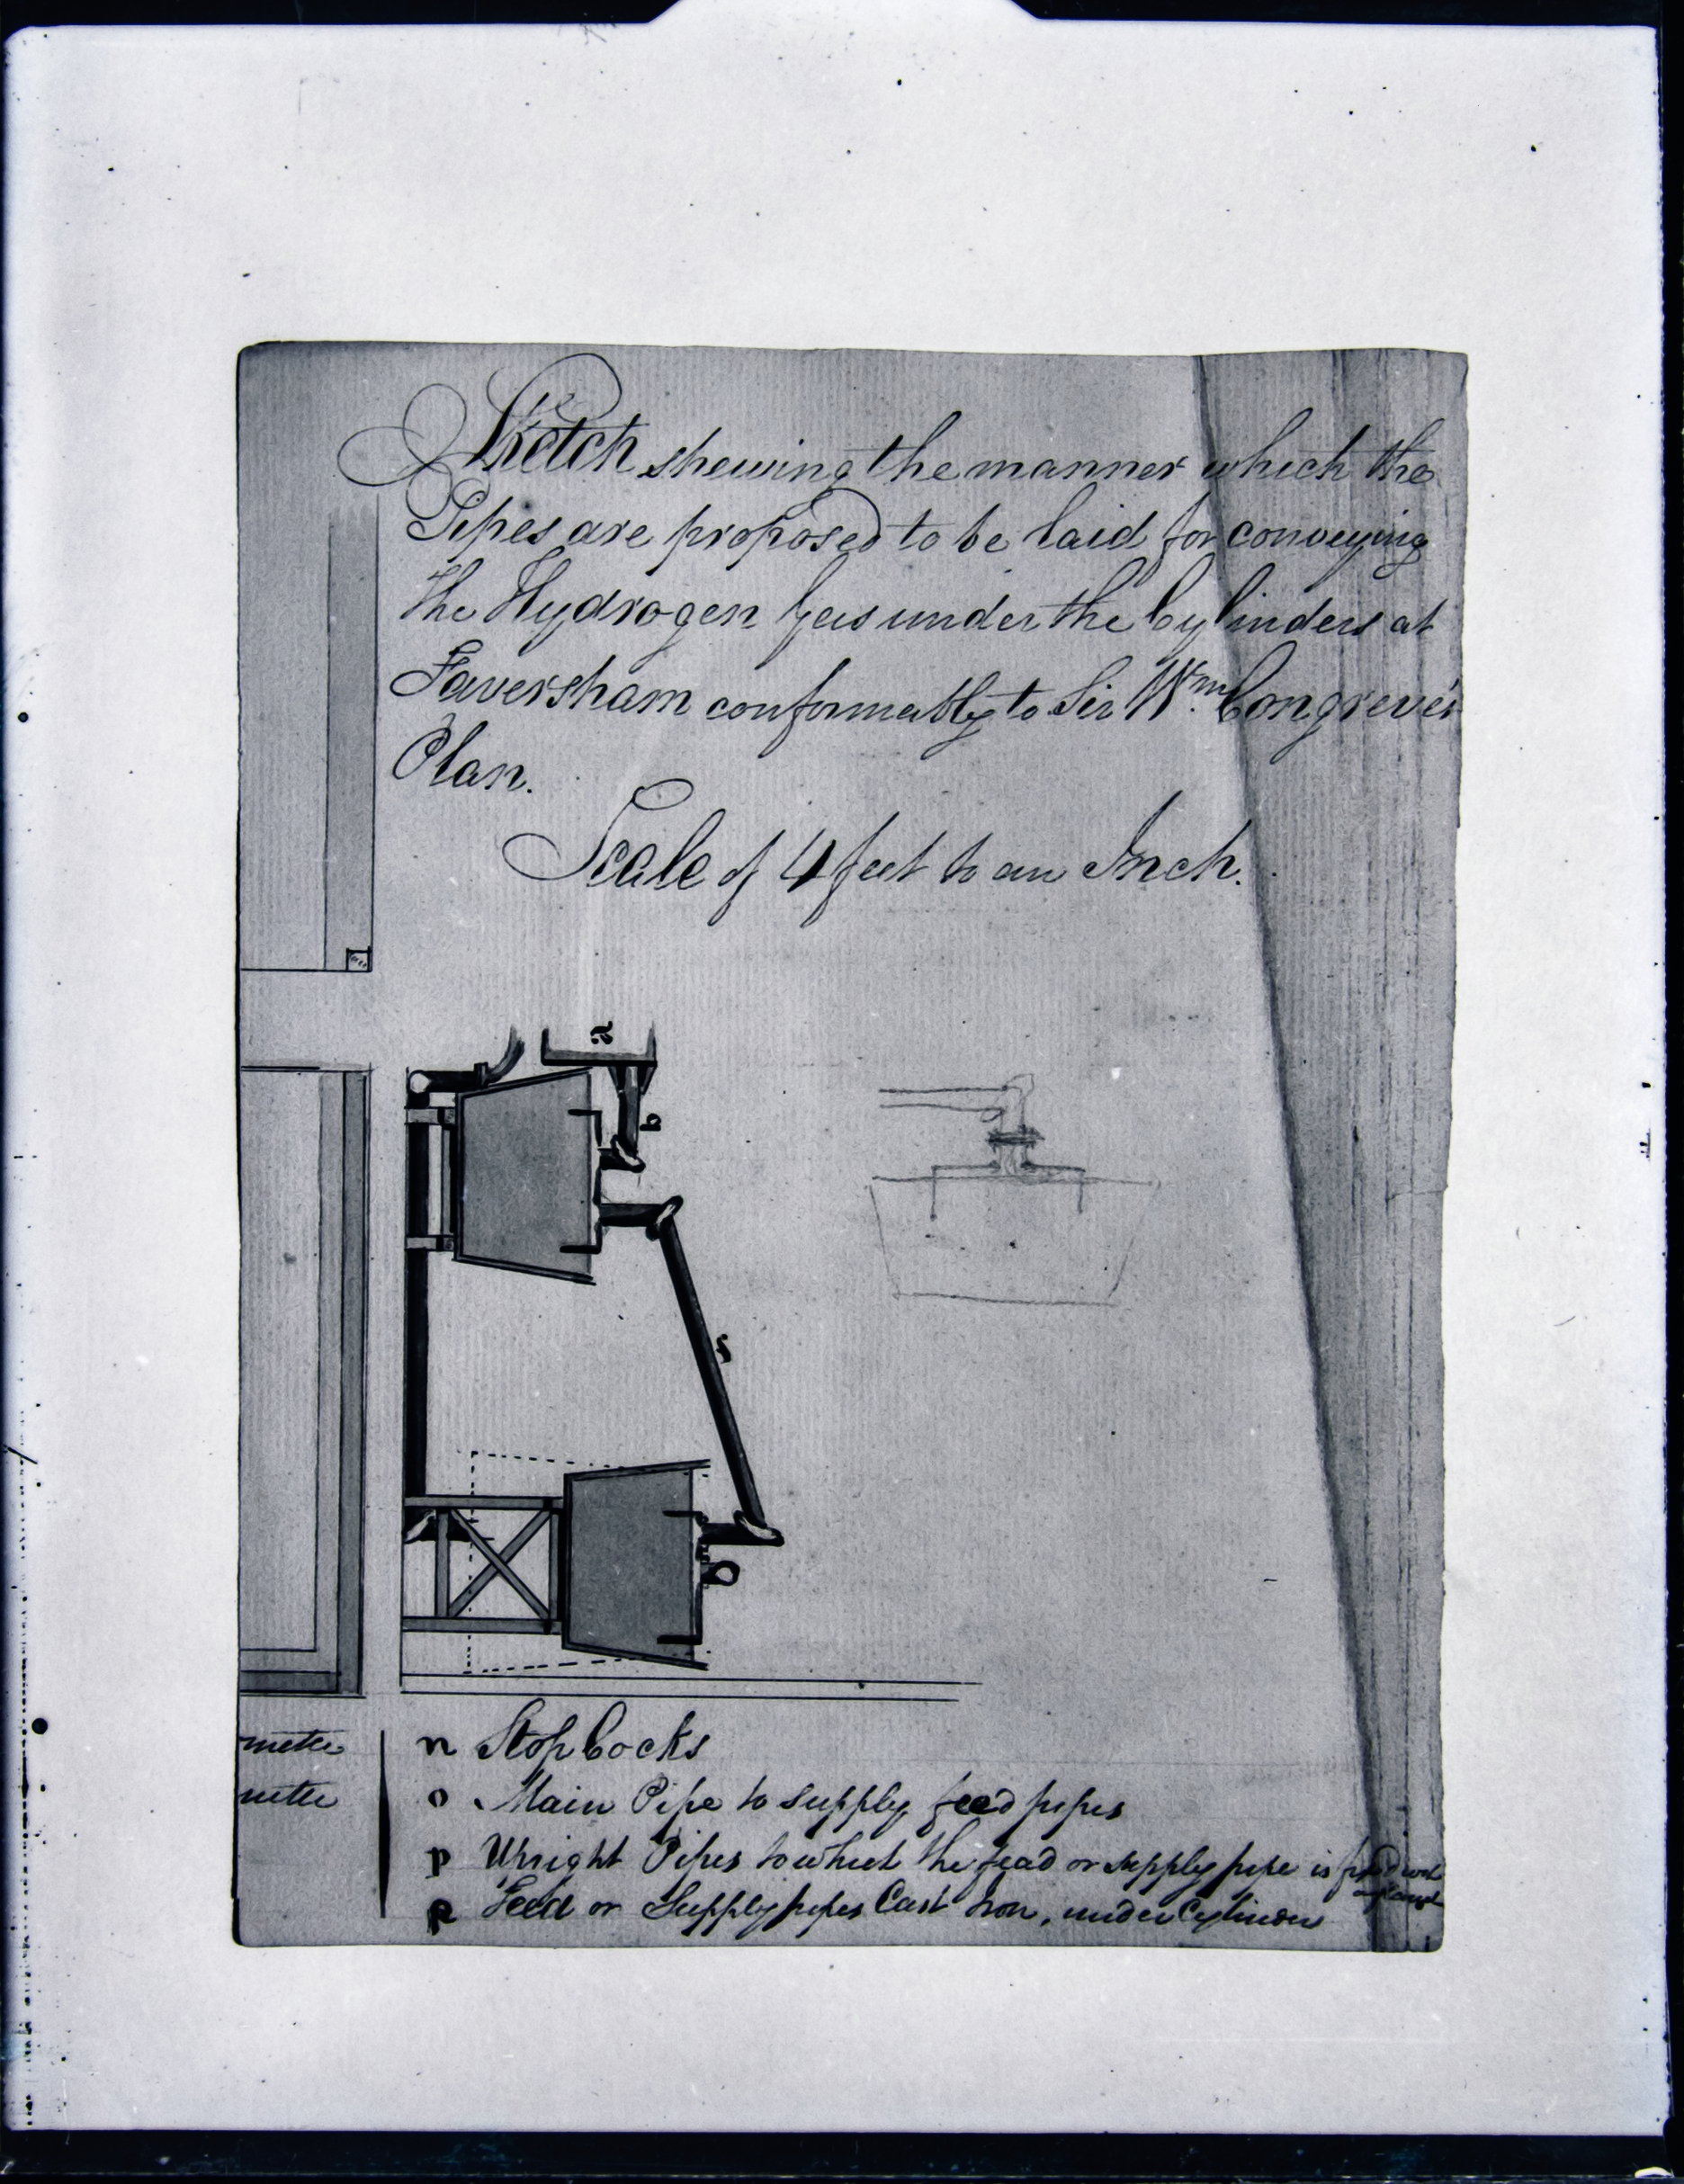 Sketch shewing the manner which the
Pipes are proposed to be laid for conveying
the Hydrogen Gas under the Cylinders at
Faversham conformably to Sir Wm. Congreve's
Plan.
Scale of 4 feet to an Inch.
a
b
s
n Stop Cocks
o Main Pipe to supply feed pipes
p Upright Pipes to which the fead or supply pipe is
Feed or Supply pipes Cast Iron, under Cylinder